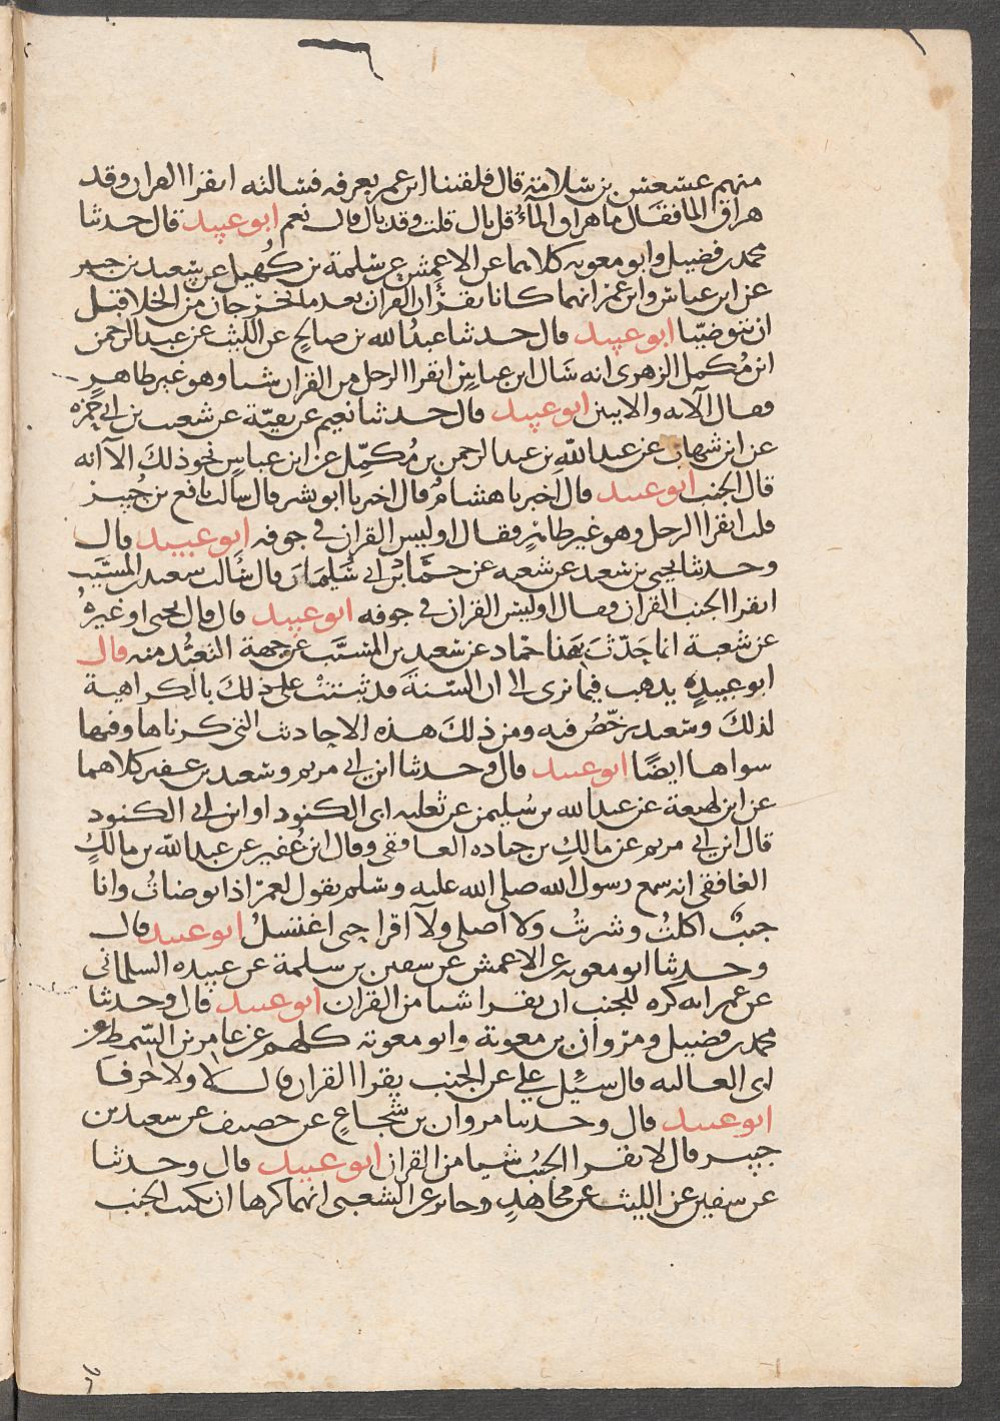 منهم عسعس بن سلامة قال فلقينا ابن عمر بعرفه فسالته ايقرا القران وقد
هراق الما فقال ما هراق المآء قل بال قلت وقد بال قال نعم ابو عبيد قال حدثنا
محمد بن فضيل وابو معويه كلاهما عن الاعمش عن سلمة بن كهيل عن سعيد بن جبير
عن ابن عباس وابن عمر انهما كانا يقرآن القران بعد ما يخرجان من الخلا قبل
ان يتوضيا ابو عبيد قال حدثنا عبد الله بن صالح عن الليث عن عبد الرحمن
ابن مكمل الزهرى انه سال ابن عباس ايقرا الرجل من القران شيا وهو غير طاهر
فقال الآيه والايتين ابو عبيد قال حدثنا نعيم عن بقية عن شعيب بن ابي حمزه
عن ابن شهاب عن عبد الله بن عبد الرحمن بن مكمل عن ابن عباس نحو ذلك الا انه
قال الجنب ابو عبيد قال اخبرنا هشام قال اخبرنا ابو بشر قال سالت نافع بن جبير
قلت ايقرا الرجل وهو غير طاهر فقال اوليس القران في جوفه ابو عبيد قال
وحدثنا يحيى بن سعيد عن شعبه عن حماد بن ابي سليمان قال سالت سعيد بن المسيب
ايقرا الجنب القران فقال اوليس القران في جوفه ابو عبيد قال قال يحيى او غيره
عن شعبة انما حدث بهذا حماد عن سعيد بن المسيب عن جهة التعبد منه قال
ابو عبيد يذهب فيما نرى الى ان السنة قد ثبتت على ذلك بالكراهية
لذلك وسعيد يرخص فيه ومن ذلك هذه الاحاديث التي ذكرناها وفيها
سواها ايضا ابو عبيد قال وحدثنا ابن ابي مريم وسعيد بن عفير كلاهما
عن ابن لهيعة عن عبد الله بن سليمن عن ثعلبه ابى الكنود او ابن ابى الكنود
قال ابن ابي مريم عن مالك بن جناده الغافقى وقال ابن عفير عن عبد الله بن مالك
الغافقى انه سمع رسول الله صلى الله عليه وسلم يقول لعمر اذا توضات وانا
جنب اكلت وشربت ولا اصلى ولآ اقرا حتى اغتسل ابو عبيد قال
وحدثنا ابو معويه عن الاعمش عن سفين بن سلمة عن عبيده السلمانى
عن عمر انه كره للجنب ان يقرا شيا من القران ابو عبيد قال وحدثنا
محمد بن فضيل ومروان بن معوية وابو معويه كلهم عن عامر بن السمط عن
ابى العاليه قال سيل علي عن الجنب يقرا القران قال لا ولا حرفا
ابو عبيد قال وحدثنا مروان بن شجاع عن خصيف عن سعيد بن
جبير قال لا يقرا الجنب شيا من القران ابو عبيد قال وحدثنا
عن سفين عن الليث عن مجاهد وجابر عن الشعبى انهما كرها ان يكتب الجنب